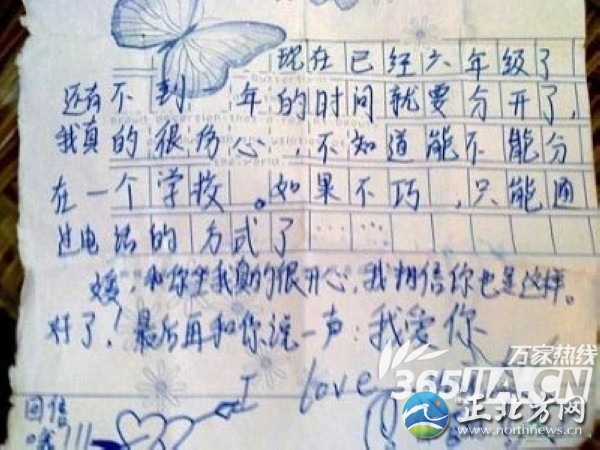 现在已经六年级了
还有不到 年的时间就要分开了,
我真的很伤心,不知道能不能分
在一个学校。如果不巧,只能通
过电话的方式了……
媛,和你坐我真的很开心,我相信你也是这样。
好了!最后再和你说一声:我爱你
I love
回信
哦!!!
万家热线
365JIA.CN
正北方网
www.northnews.cn